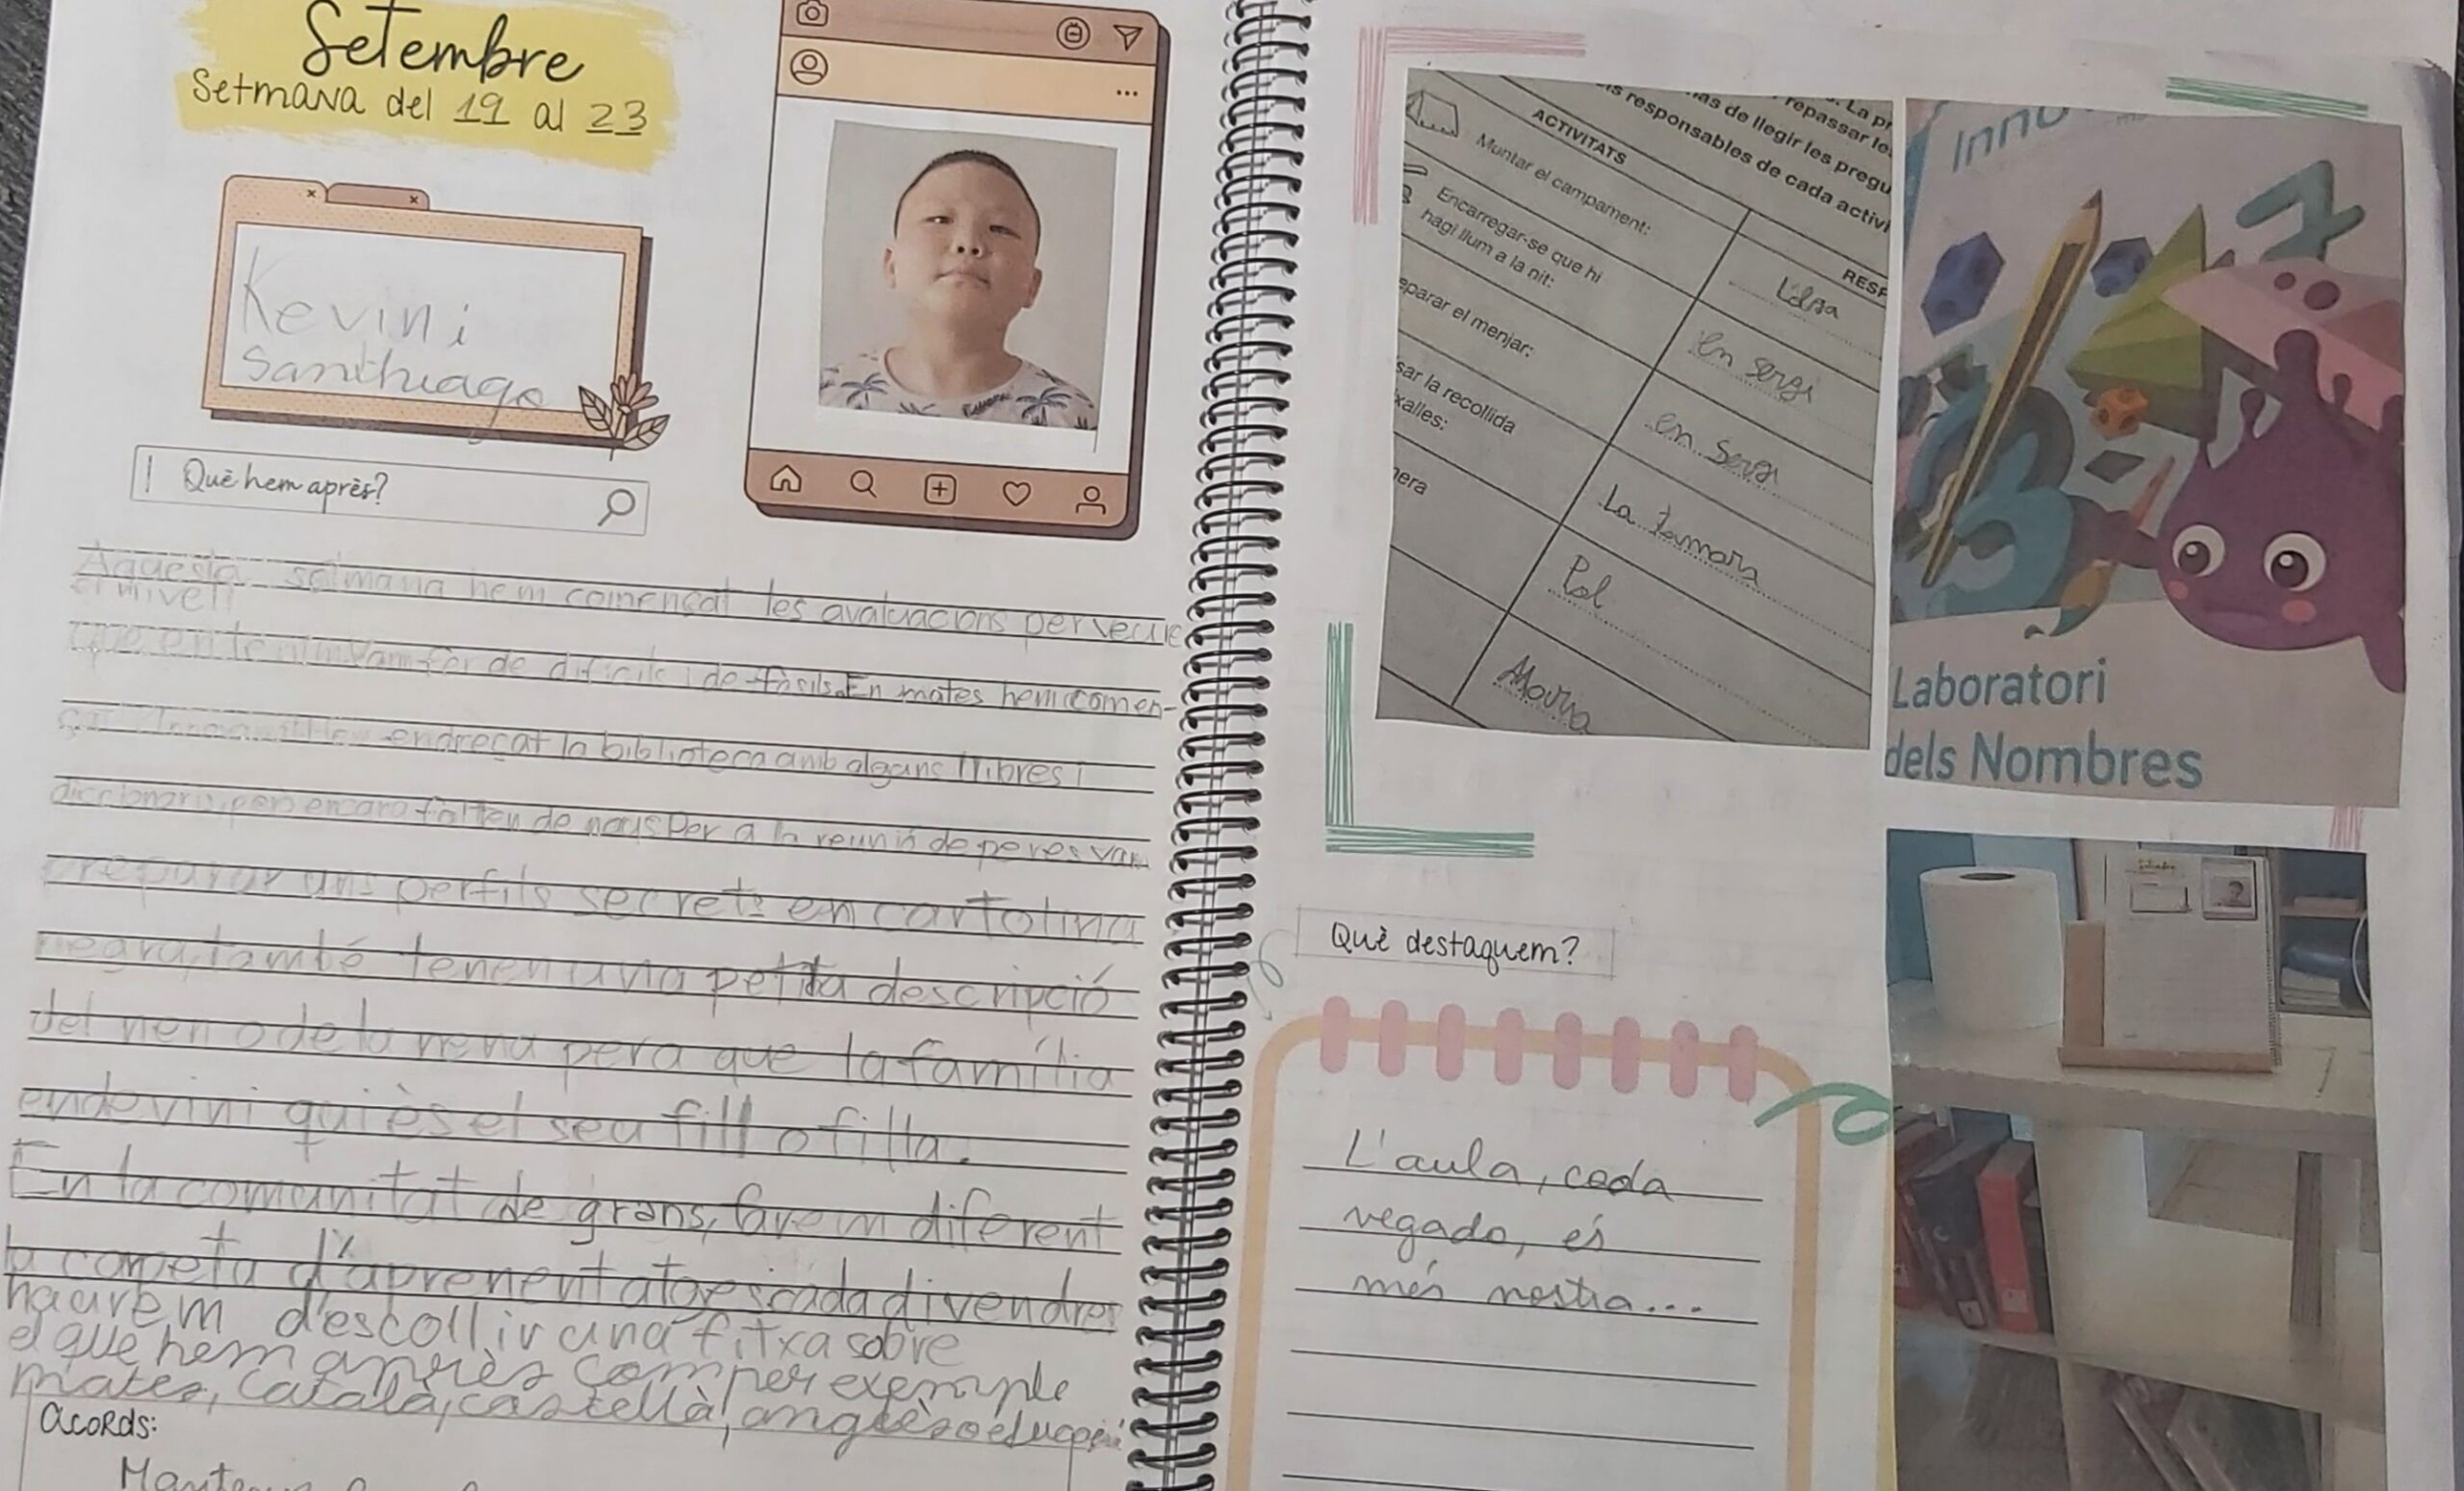 Setembre
Setmana del 19 al 23
Kevin i
Santhiago
Què hem après?
Aquesta setmana hem començat les avaluacions per veure
el nivell
que en tenim. Vam fer de dificils i de fàsils. En mates hem comen-
çat Innovamat. Hem endreçat la biblioteca amb alguns llibres i
diccionaris, pero encara falten de nous. Per a la reunió de pares vam
preparar uns perfils secrets en cartolina
negra, també tenen una petita descripció
del nen o de la nena pera que la família
endevini qui ès el seu fill o filla.
En la comunitat de grans, farem diferent
la carpeta d'aprenentatges: cada divendres
haurem d'escollir una fitxa sobre
el que hem après com per exemple
mates, català, castellà, anglès o educació
acords:
ACTIVITATS
RESP
La pr
repassar le
nas de llegir les pregu
ls responsables de cada activi
Muntar el campament:
Encarregar-se que hi
hagi llum a la nit:
en sergi
eparar el menjar:
en Sergi
sar la recollida
xalles:
La Tamara
nera
Pol
Inno
Laboratori
dels Nombres
Setembre
Què destaquem?
L'aula, cada
vegada, és
més nostra...